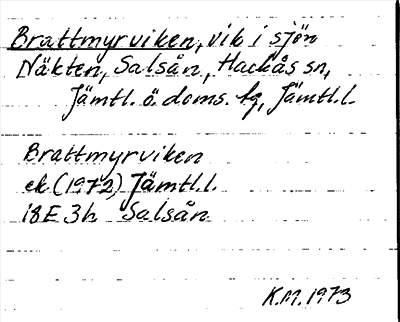 Brattmyrviken, vik i sjön
Näkten, Salsån, Hackås sn,
Jämtl. ö. doms. tg, Jämtl.l.
Brattmyrviken
ek (1972) Jämtl.l.
18E 3h Salsån
K.M. 1973